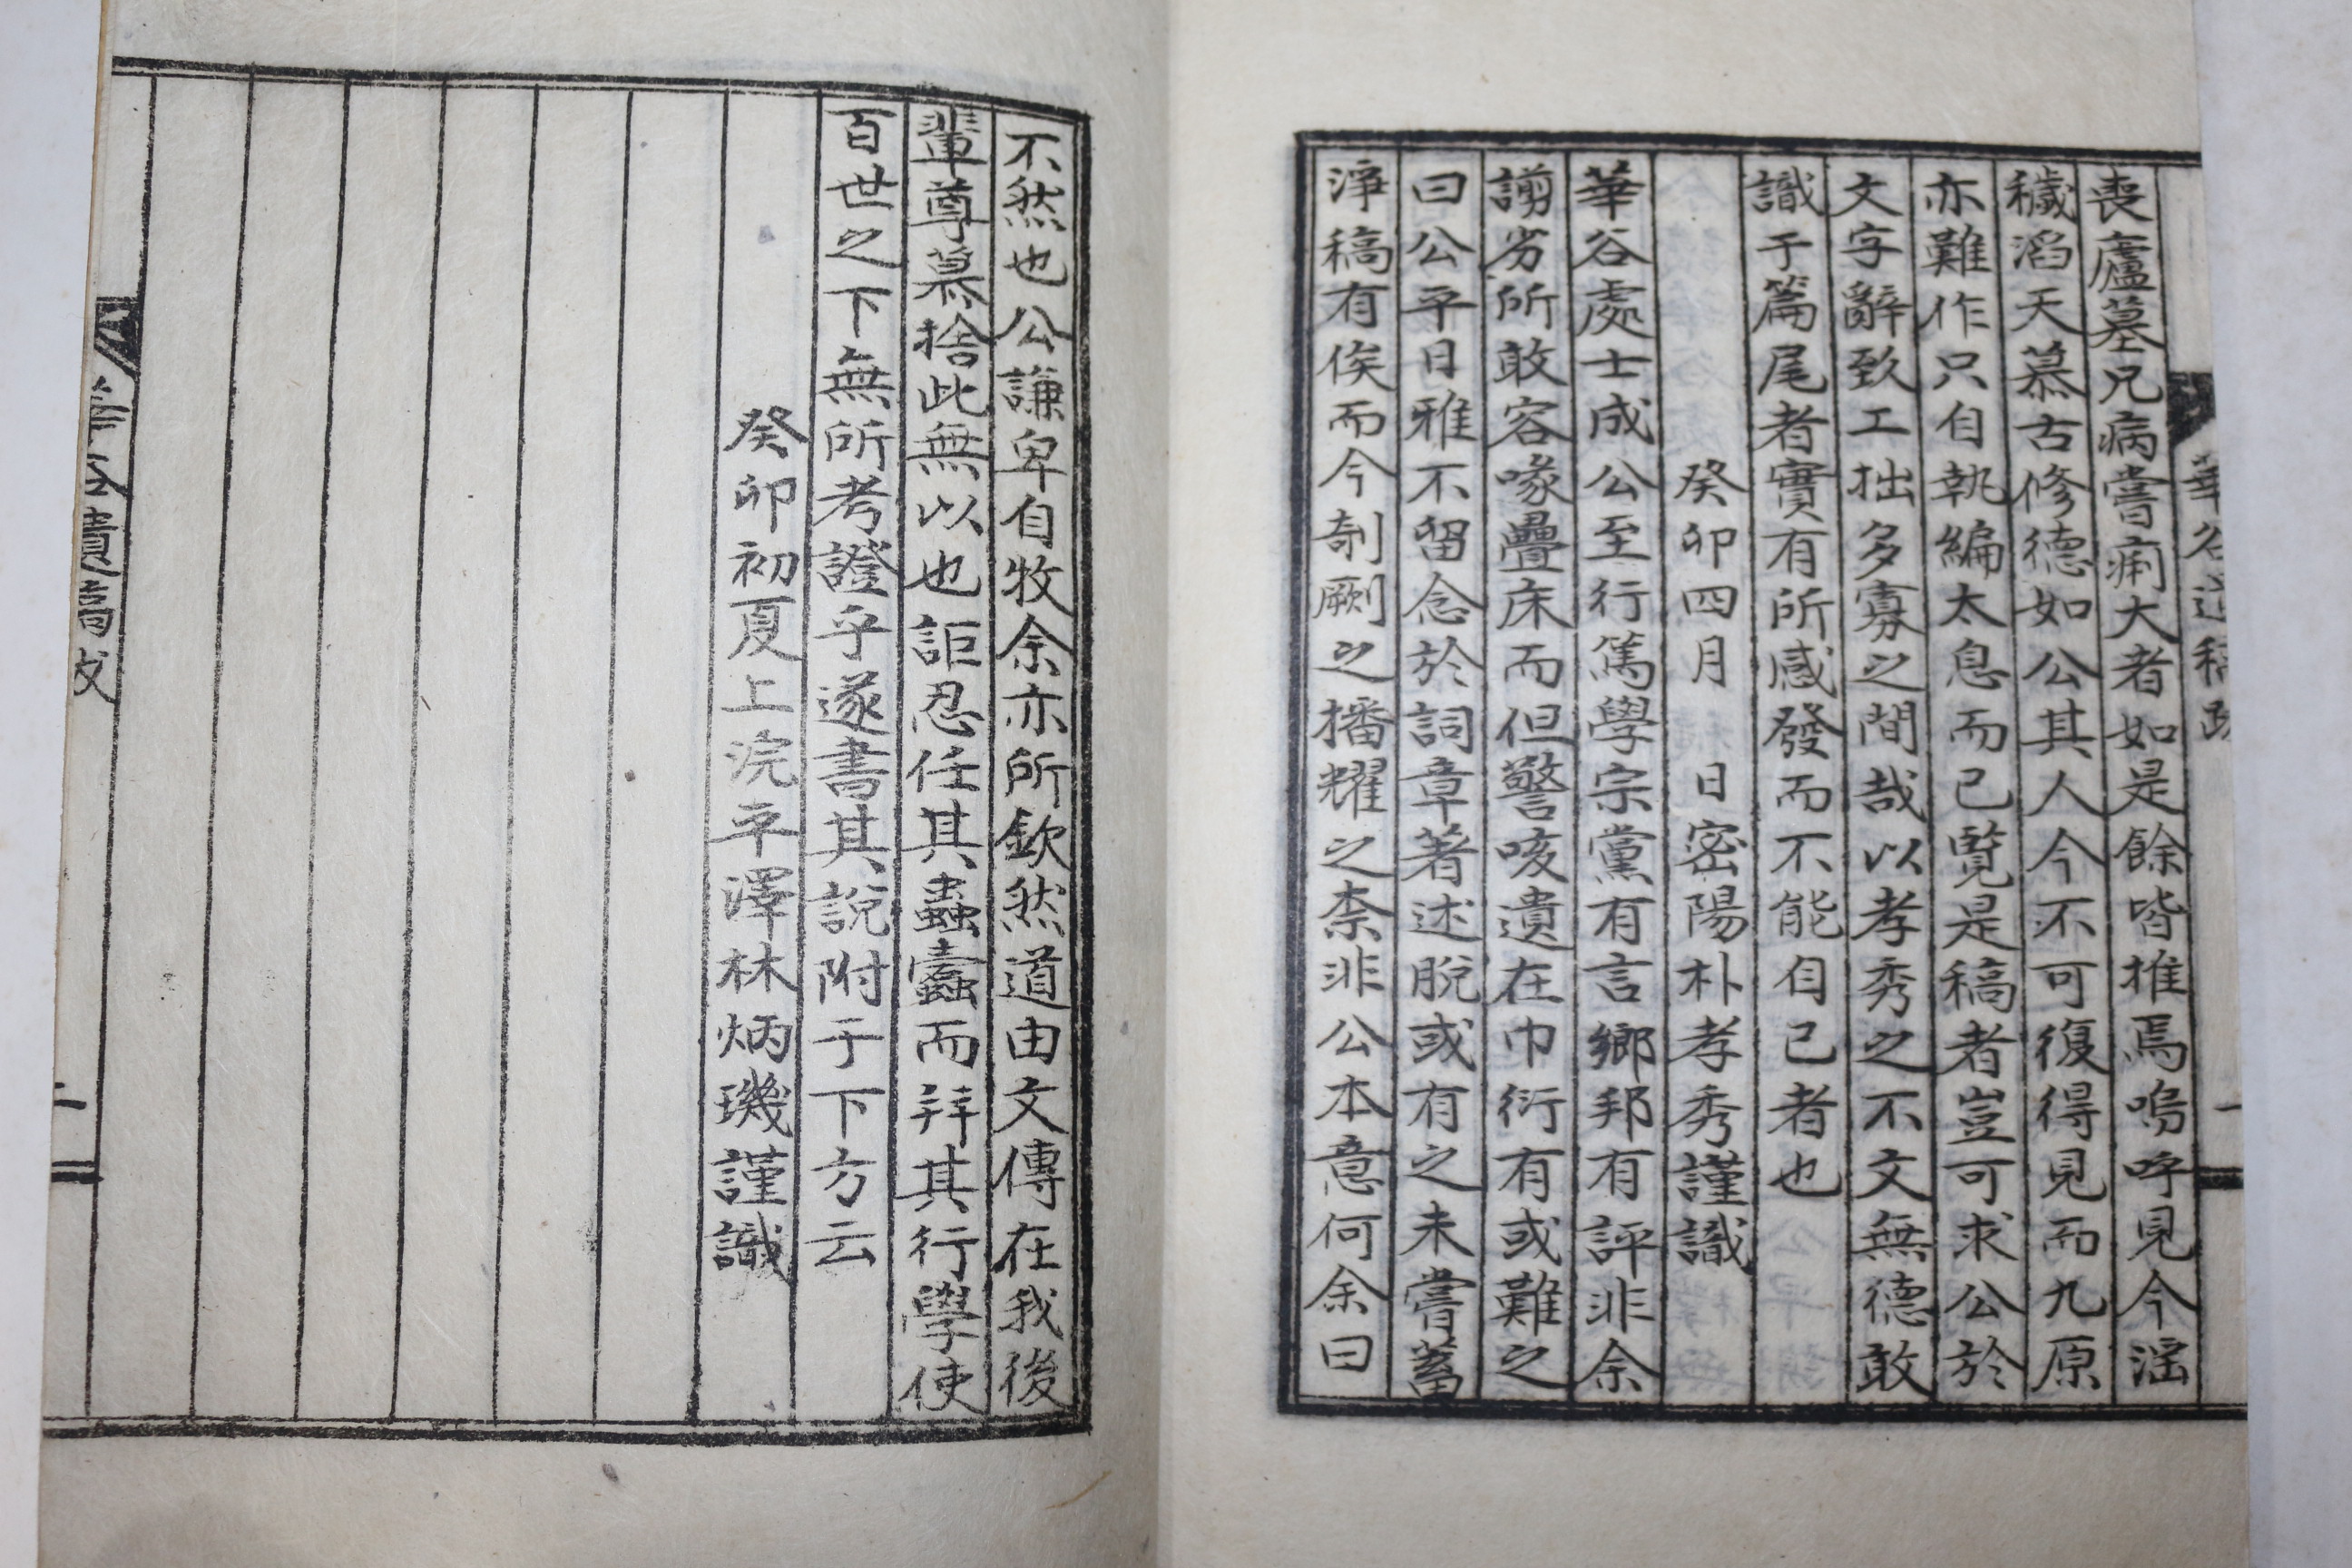 華谷遺稿跋
一
喪廬墓兄病嘗痢大者如是餘皆推焉嗚呼見今滔
穢滔天慕古修德如公其人今不可復得見而九原
亦難作只自執編太息而已覽是稿者豈可求公於
文字辭致工拙多寡之間哉以孝秀之不文無德敢
識于篇尾者實有所感發而不能自已者也
癸卯四月 日密陽朴孝秀謹識
華谷處士成公至行篤學宗黨有言鄉邦有評非余
謭劣所敢容喙疊床而但警咳遺在巾衍有或難之
曰公平日雅不留念於詞章著述脫或有之未嘗蓄
淨稿有俟而今剞劂之播耀之柰非公本意何余曰
不然也公謙卑自牧余亦所欽然道由文傳在我後
輩尊慕捨此無以也詎忍任其蟲蠹而拜其行學使
百世之下無所考證乎遂書其說附于下方云
癸卯初夏上浣平澤林炳璣謹識
華谷遺稿跋
二